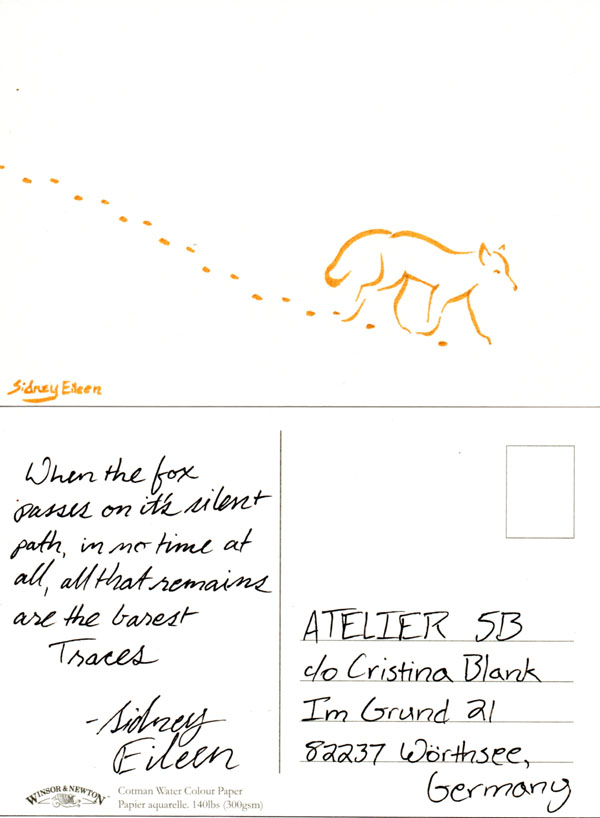 Sidney Eileen
When the fox
passes on it's silent
path, in no time at
all, all that remains
are the barest
Traces
-Sidney
Eileen
ATELIER 5B
c/o Cristina Blank
Im Grund 21
82237 Wörthsee,
Germany
WINSOR & NEWTON
Cotman Water Colour Paper
Papier aquarelle. 140lbs (300gsm)